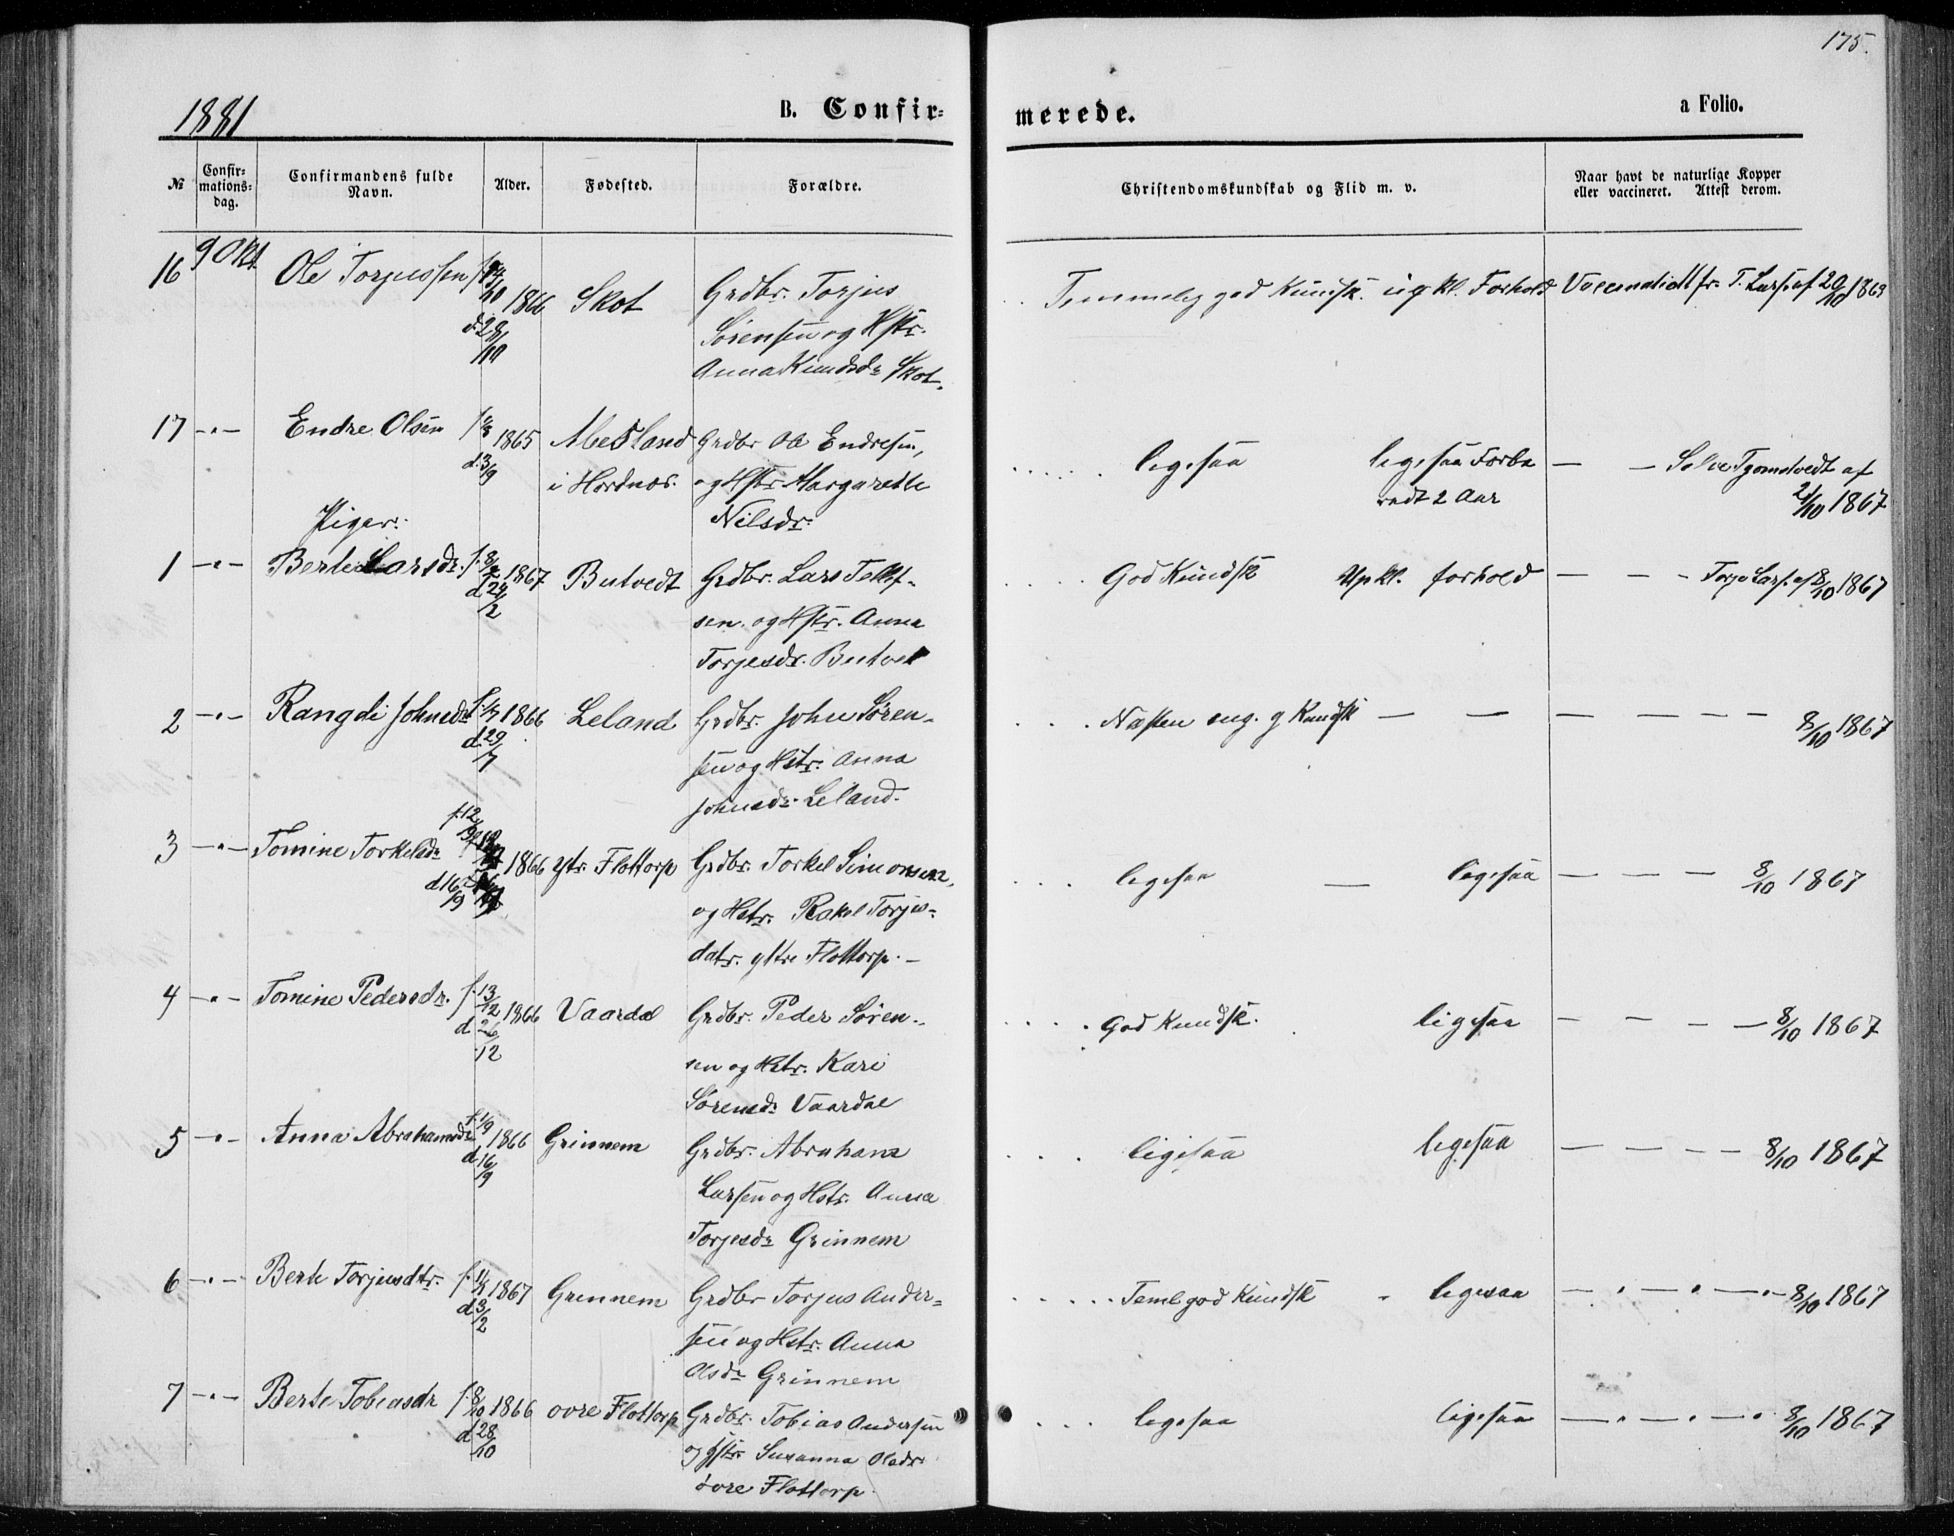 175.
1881
B. Confir-
merede.
a Folio.
№
Confir-
mations-
dag.
Confirmandens fulde
Navn.
Alder.
Fødested.
Forældre.
Christendomskundskab og Flid m. v.
Naar havt de naturlige Kopper
eller vaccineret. Attest derom.
16 9 Okt. Ole Torjussen f. 14/10 1866 Skot Grdbr. Torjus Temmelig god Kundsk. ug kl. Forhold 29/10 1869
d. 28/10 Sørensen og Hstr.
Anna Knudsdr Skot.
17 -"- Endre Olsen 1865 Abesland Grdbr Ole Endresen, ligesaa ligesaa Forbe — — af
d. 3/9 i Hordnes. og Hstr Margarethe redt 2 Aar 21/10 1867
Nilsdr.
Piger:
1 -"- Berte Larsdr. f. 8/2 1867 Butvedt Grdbr. Lars Tellef- God Kundsk Upkl. forhold — — - Torje Lars. af 8/10 1867
d. 24/2 sen. og Hstr. Anna
Torjesdr. Butvet
2 -"- Rangdi Johnsdr f. 1/7 1866 Leland Grdbr. John Søren- Næsten mg. g Kundsk — — — — — — 8/10 1867
d. 29/7 sen og Hstr. Anna
Johnsdr. Leland.
3 -"- Tomine Torkelsdr f. 12/9 1866 ytr. Flottorp Grdbr. Torkel Simonsen, ligesaa — ligesaa — — — — 8/10 1867
d 16/9 og Hstr. Rakel Torjus-
datr. yttre Flottorp. -
4 -"- Tomine Pedersdr. f. 13/12 1866 Vaardal Grdbr. Peder Søren- God Kundsk. ligesaa — — - — 8/10 1867
d. 26/12 sen og Hstr. Kari
Sørensdr Vaardal
5 -"- Anna Abrahamsdr f. 1/9 1866 Grinnem Grdbr. Abraham ligesaa ligesaa — — — - — 8/10 1867
d. 16/9 Larsen og Hstr. Anna
Torjesdr Grinnem
6 -"- Berte Torjusdtr. f. 11/1 1867 Grinnem Grdbr Torjus Ander- Teml god Kundsk - ligesaa — . — . — . — . 8/10 1867
d 3/2 sen og Hstr. Anna
Olsdr Grinnem
7 -"- Berte Tobiasdr f. 8/10 1866 øvre Flottorp Grdbr. Tobias Andersen ligesaa ligesaa — . — . — . 8/10 1867
d 28/10 og Hstr. Susanna Olsdr.
øvre Flottorp.